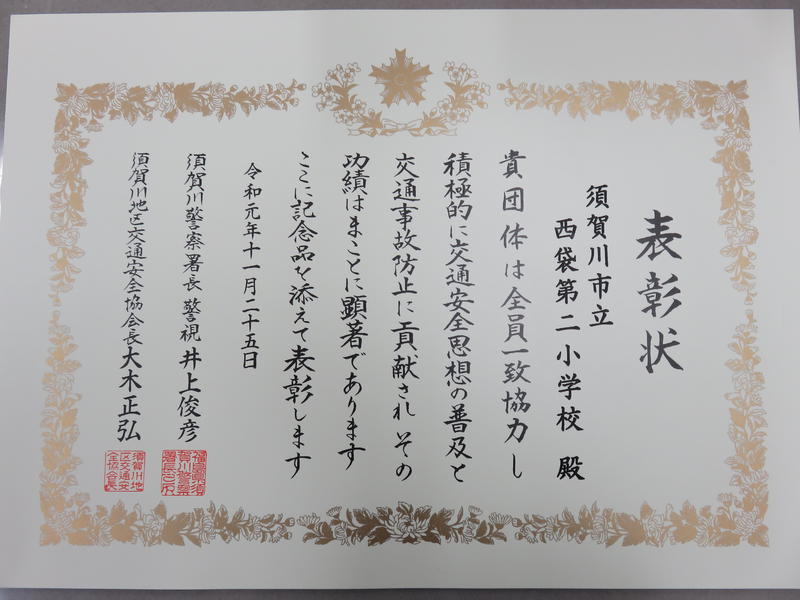 表彰状
須賀川市立
西袋第二小学校 殿
貴団体は全員一致協力し
積極的に交通安全思想の普及と
交通事故防止に貢献され その
功績はまことに顕著であります
ここに記念品を添えて表彰します
令和元年十一月二十五日
須賀川警察署長 警視 井上俊彦
須賀川地区交通安全協会長 大木正弘
須賀川地
区交通安
全協会長